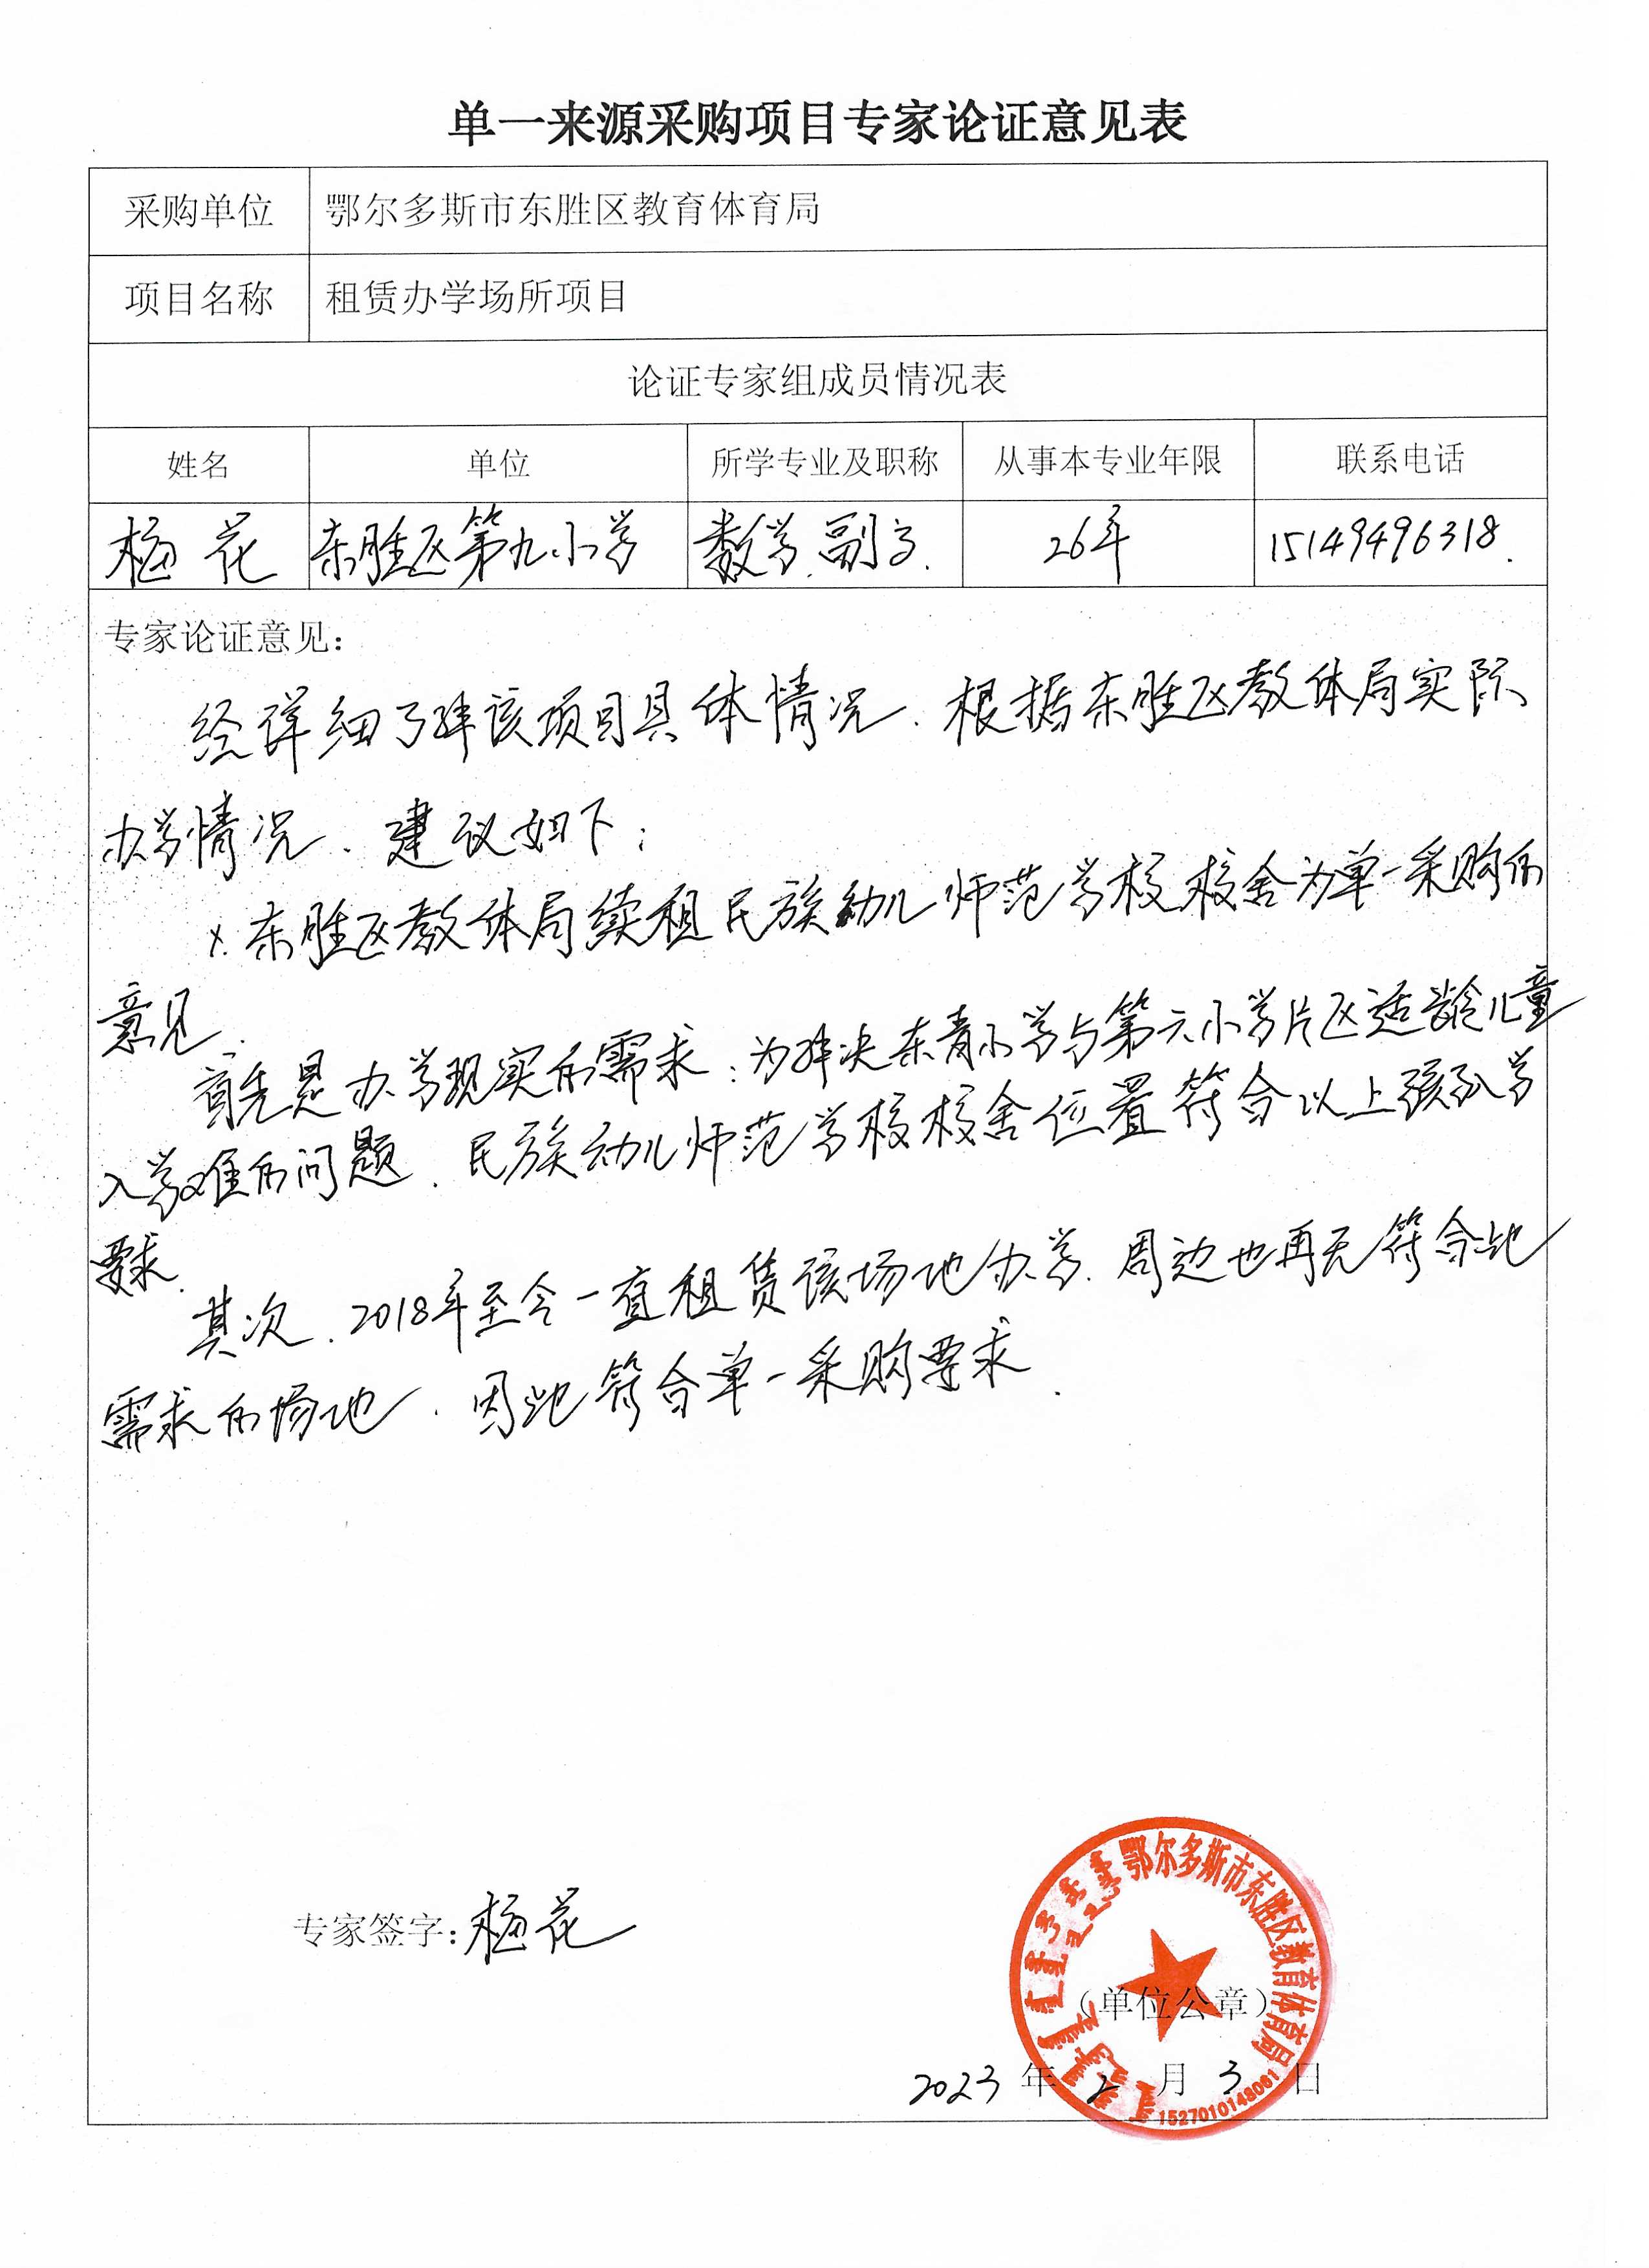 单一来源采购项目专家论证意见表
采购单位 鄂尔多斯市东胜区教育体育局
项目名称 租赁办学场所项目
论证专家组成员情况表
姓名 单位 所学专业及职称 从事本专业年限 联系电话
梅花 东胜区第九小学 数学.副高. 26年 15149496318.
专家论证意见：
经详细了解该项目具体情况.根据东胜区教体局实际
办学情况.建议如下：
东胜区教体局续租民族幼儿师范学校校舍为单一采购的
意见.
首先是办学现实的需求：为解决东青小学与第六小学片区适龄儿童
入学难的问题.民族幼儿师范学校校舍位置符合以上孩子入学
要求.
其次.2018年至今一直租赁该场地办学.周边也再无符合此
需求的场地.因此符合单一采购要求.
专家签字：梅花
鄂尔多斯市东胜区教育体育局
（单位公章）
2023年2月3日